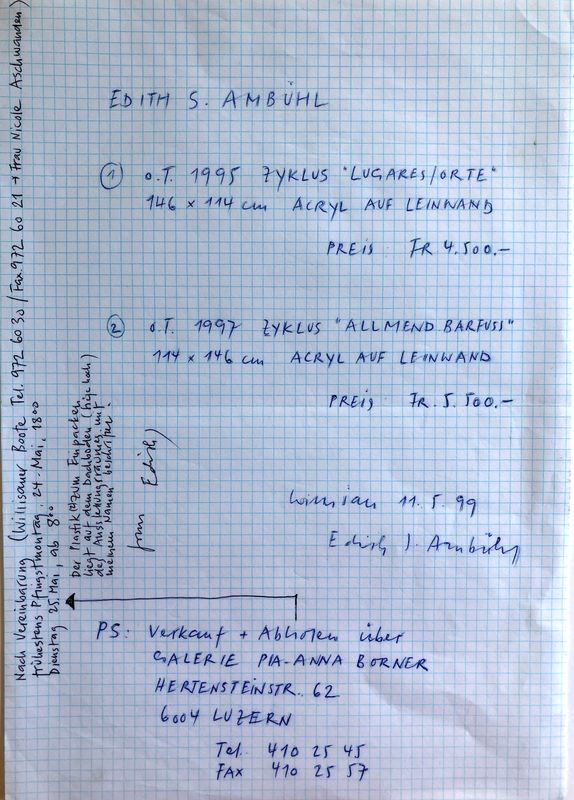 EDITH S. AMBÜHL
1 o.T. 1995 ZYKLUS "LUGARES/ORTE"
146 x 114 cm ACRYL AUF LEINWAND
PREIS: FR 4.500.–
2 o.T. 1997 ZYKLUS "ALLMEND BARFUSS"
114 x 146 cm ACRYL AUF LEINWAND
PREIS FR. 5.500.–
11.5.99
Edith S. Ambühl
PS: Verkauf + Abholen über
GALERIE PIA-ANNA BORNER
HERTENSTEINSTR. 62
6004 LUZERN
Tel. 410 25 45
FAX 410 25 57
Nach Vereinbarung (Willisauer Boote Tel. 972 60 30 / Fax. 972 60 21 + Frau Nicole Aschwanden)
frühestens Pfingstmontag, 24. Mai, 1800
Dienstag 25. Mai, ab 800
Der Plastik zum Einpacken
liegt auf dem Dachboden
des Ausstellungsraumes mit
meinem Namen beschriftet.
Edith